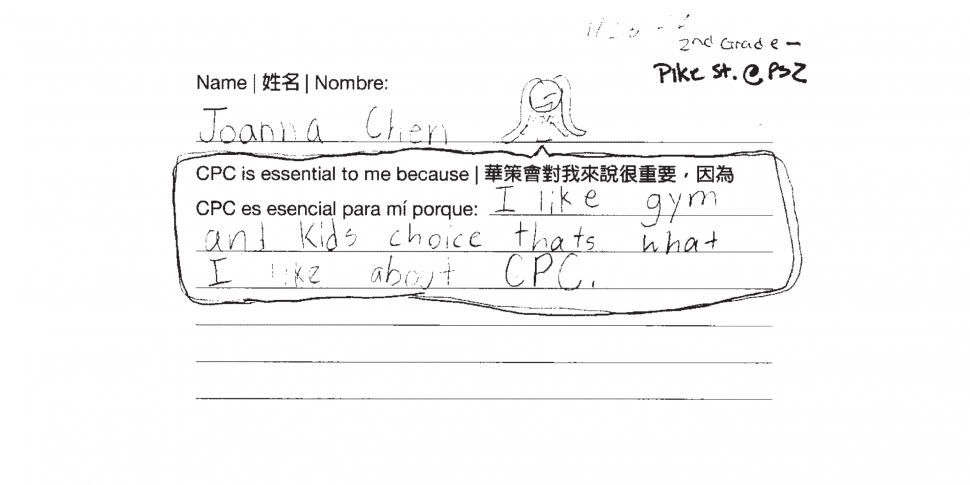 2nd Grade –
Pike St. @ PS2
Name | 姓名 | Nombre:
Joanna Chen
CPC is essential to me because | 華策會對我來說很重要，因為
CPC es esencial para mí porque: I like gym
and Kids choice thats what
I like about CPC.